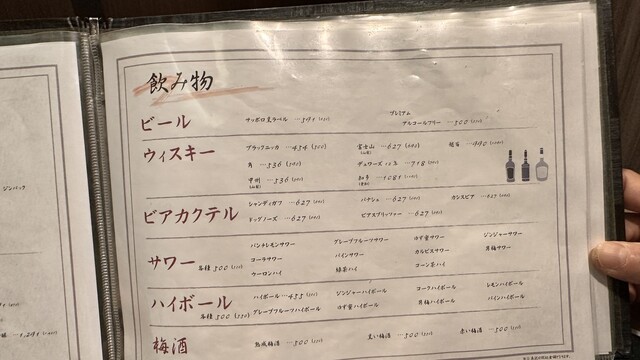 飲み物
ビール
サッポロ黒ラベル
プレミアム
アルコールフリー …500 (550)
ウィスキー
ブラックニッカ …454 (500)
富士山 …627 (690)
角 …536 (590)
デュワーズ12年 …718
甲州 …536 (590)
知多 …1081
ビアカクテル
シャンディガフ …627 (690)
パナシェ …627 (690)
カンスピア
ドッグノーズ …627 (690)
ビアスプリッツァー …627 (690)
サワー 各種 500 (550)
パンチレモンサワー
グレープフルーツサワー
ゆず蜜サワー
ジンジャーサワー
コーラサワー
パインサワー
カルピスサワー
月桃サワー
ウーロンハイ
緑茶ハイ
コーン茶ハイ
ハイボール 各種 500 (550)
ハイボール …455
ジンジャーハイボール
コークハイボール
レモンハイボール
グレープフルーツハイボール
ゆず蜜ハイボール
月桃ハイボール
パインハイボール
梅酒
熟成梅酒 …500 (550)
黒い梅酒 …500 (550)
赤い梅酒 …500 (550)
ジンバック